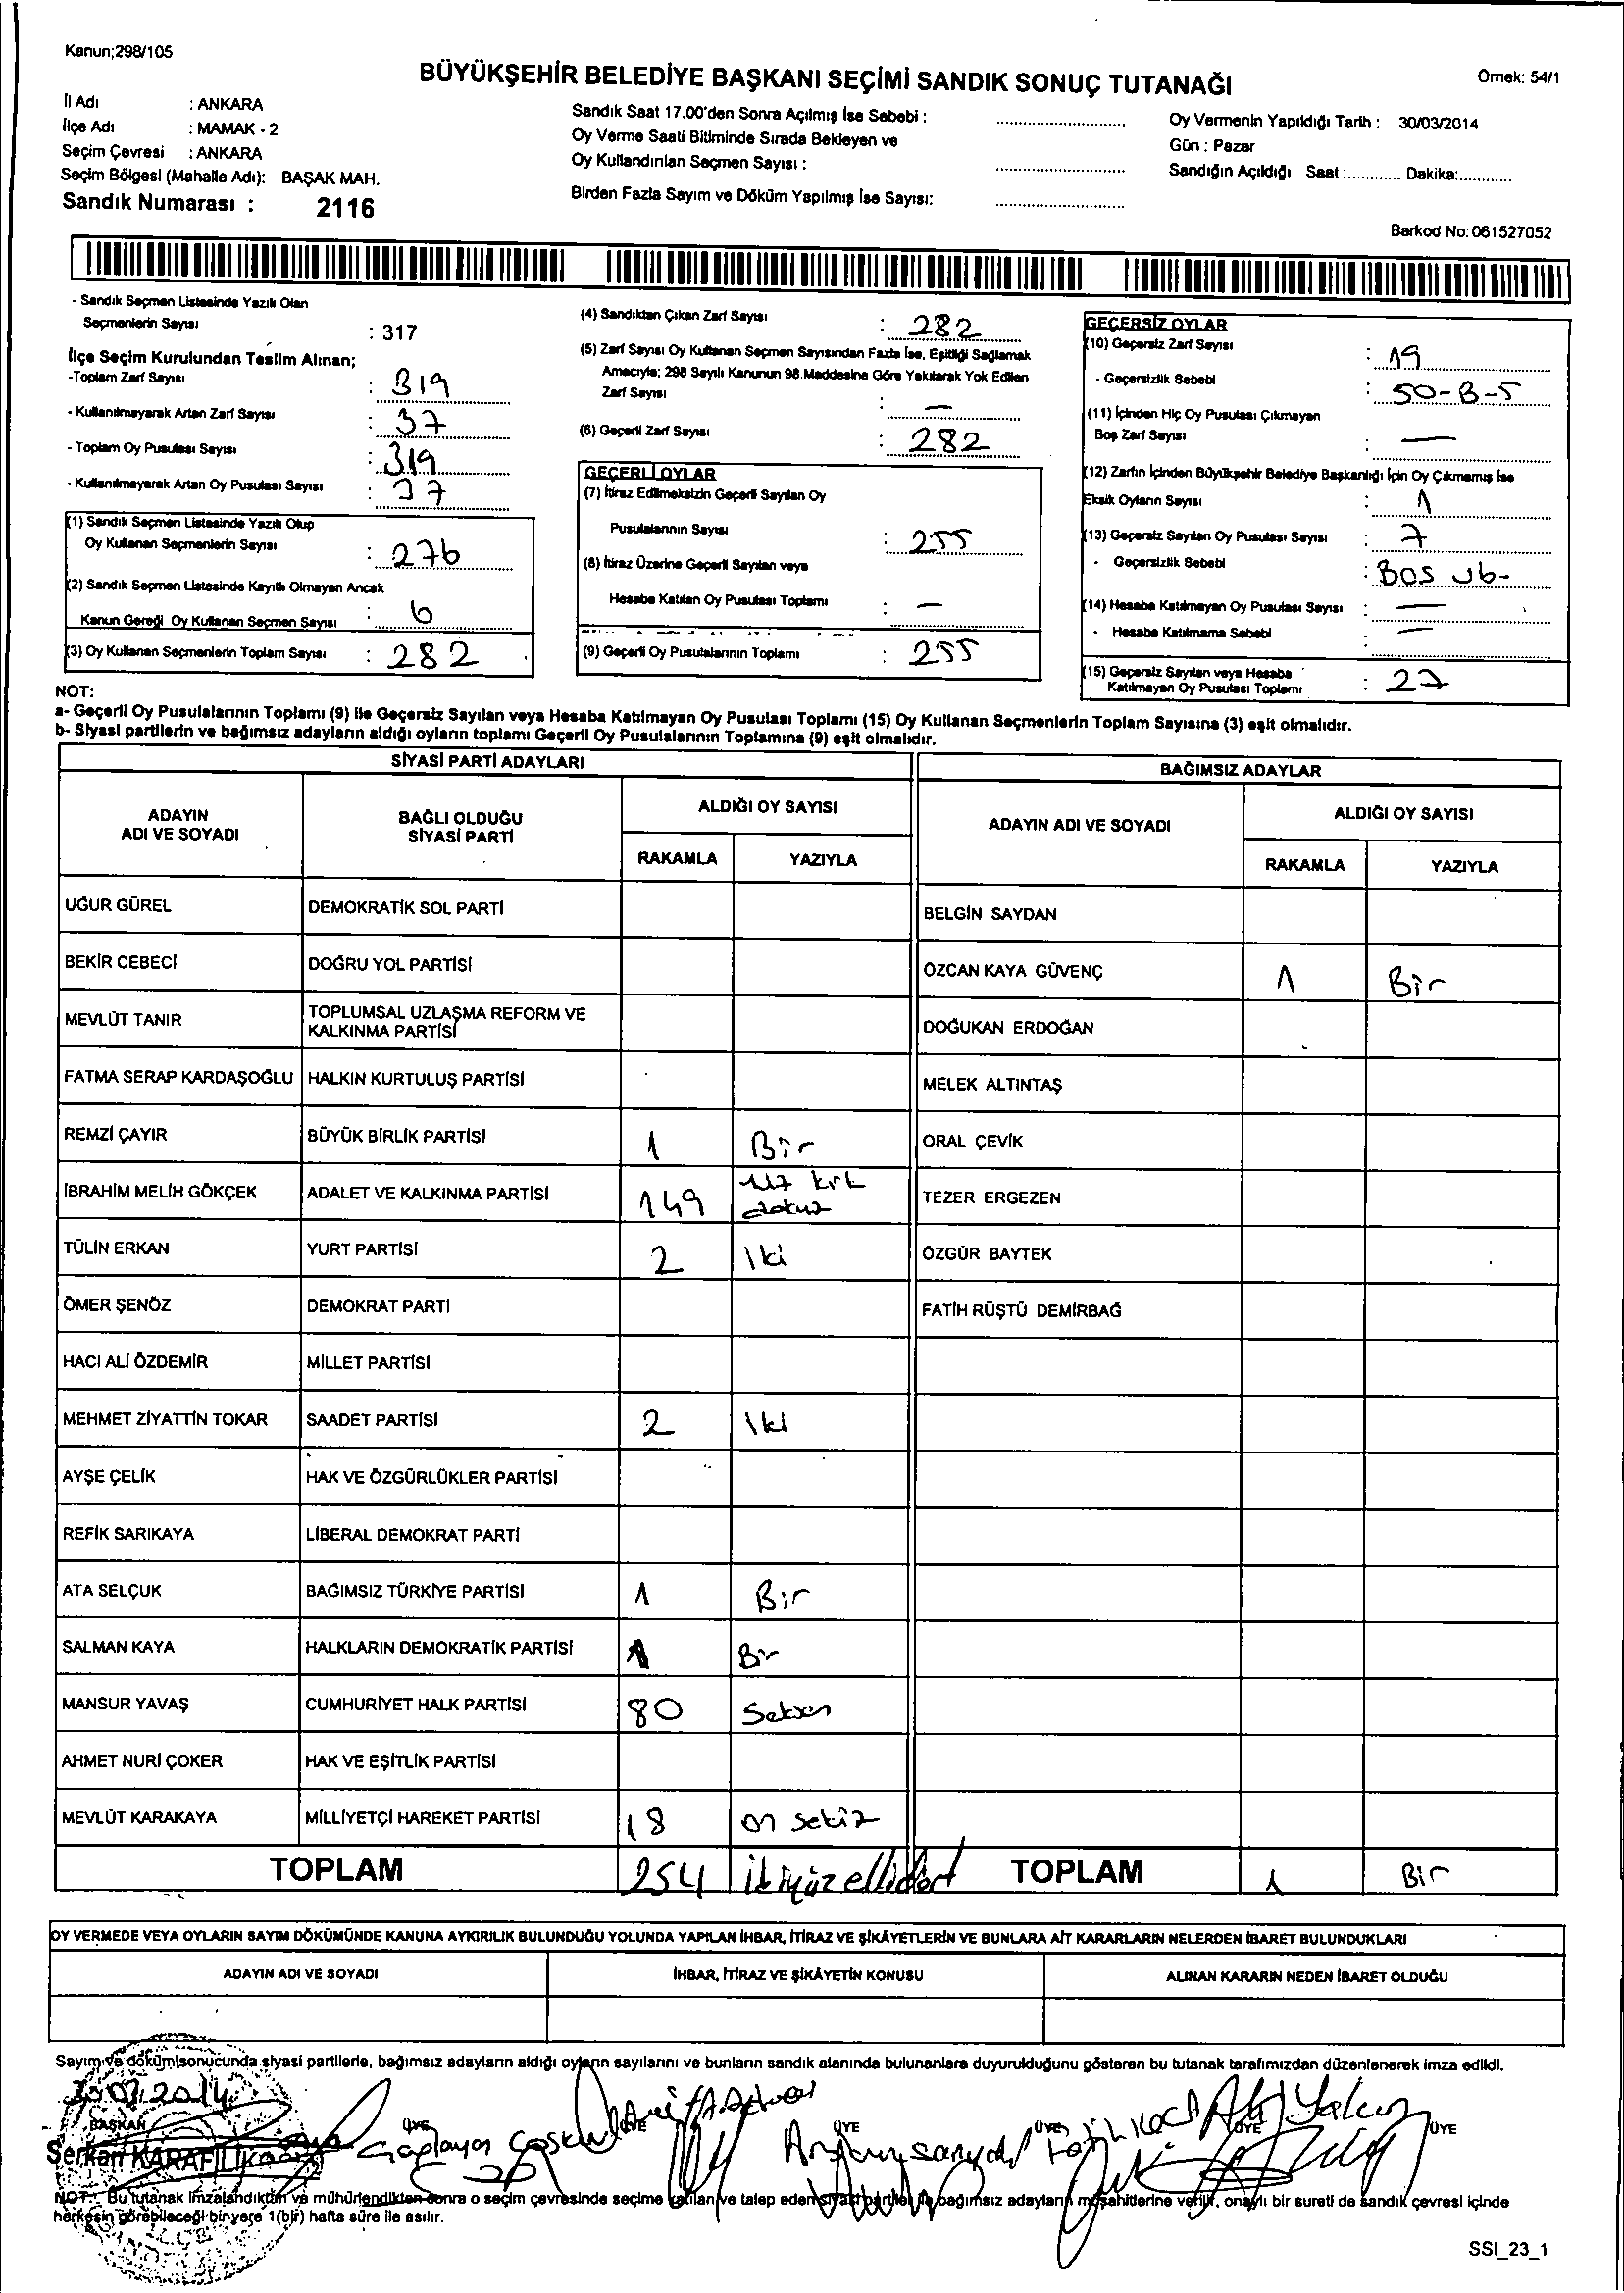 Kanun;298/105
BÜYÜKŞEHİR BELEDİYE BAŞKANI SEÇİMİ SANDIK SONUÇ TUTANAĞI
Örnek: 54/1
İl Adı : ANKARA
İlçe Adı : MAMAK - 2
Seçim Çevresi : ANKARA
Seçim Bölgesi (Mahalle Adı): BAŞAK MAH.
Sandık Numarası : 2116
Sandık Saat 17.00'den Sonra Açılmış İse Sebebi :
Oy Verme Saati Bitiminde Sırada Bekleyen ve
Oy Kullandırılan Seçmen Sayısı :
Birden Fazla Sayım ve Döküm Yapılmış İse Sayısı:
Oy Vermenin Yapıldığı Tarih : 30/03/2014
Gün : Pazar
Sandığın Açıldığı Saat :............ Dakika:............
Barkod No: 061527052
- Sandık Seçmen Listesinde Yazılı Olan
Seçmenlerin Sayısı : 317
İlçe Seçim Kurulundan Teslim Alınan;
-Toplam Zarf Sayısı : 319
- Kullanılmayarak Artan Zarf Sayısı : 37
- Toplam Oy Pusulası Sayısı : 319
- Kullanılmayarak Artan Oy Pusulası Sayısı : 37
(1) Sandık Seçmen Listesinde Yazılı Olup
Oy Kullanan Seçmenlerin Sayısı : 276
(2) Sandık Seçmen Listesinde Kayıtlı Olmayan Ancak
Kanun Gereği Oy Kullanan Seçmen Sayısı : 6
(3) Oy Kullanan Seçmenlerin Toplam Sayısı : 282
(4) Sandıktan Çıkan Zarf Sayısı : 282
(5) Zarf Sayısı Oy Kullanan Seçmen Sayısından Fazla İse, Eşitliği Sağlamak
Amacıyla; 298 Sayılı Kanunun 98.Maddesine Göre Yakılarak Yok Edilen
Zarf Sayısı : —
(6) Geçerli Zarf Sayısı : 282
GEÇERLİ OYLAR
(7) İtiraz Edilmeksizin Geçerli Sayılan Oy
Pusulalarının Sayısı : 255
(8) İtiraz Üzerine Geçerli Sayılan veya
Hesaba Katılan Oy Pusulası Toplamı : —
(9) Geçerli Oy Pusulalarının Toplamı : 255
GEÇERSİZ OYLAR
(10) Geçersiz Zarf Sayısı : 19
- Geçersizlik Sebebi : 50-B-5
(11) İçinden Hiç Oy Pusulası Çıkmayan
Boş Zarf Sayısı : —
(12) Zarfın İçinden Büyükşehir Belediye Başkanlığı İçin Oy Çıkmamış İse
Eksik Oyların Sayısı : 1
(13) Geçersiz Sayılan Oy Pusulası Sayısı : 7
- Geçersizlik Sebebi : BOS
(14) Hesaba Katılmayan Oy Pusulası Sayısı : —
- Hesaba Katılmama Sebebi : —
(15) Geçersiz Sayılan veya Hesaba
Katılmayan Oy Pusulası Toplamı : 27
NOT:
a- Geçerli Oy Pusulalarının Toplamı (9) ile Geçersiz Sayılan veya Hesaba Katılmayan Oy Pusulası Toplamı (15) Oy Kullanan Seçmenlerin Toplam Sayısına (3) eşit olmalıdır.
b- Siyasi partilerin ve bağımsız adayların aldığı oyların toplamı Geçerli Oy Pusulalarının Toplamına (9) eşit olmalıdır.
SİYASİ PARTİ ADAYLARI
BAĞIMSIZ ADAYLAR
ADAYIN
ADI VE SOYADI
BAĞLI OLDUĞU
SİYASİ PARTİ
ALDIĞI OY SAYISI
RAKAMLA YAZIYLA
ADAYIN ADI VE SOYADI
ALDIĞI OY SAYISI
RAKAMLA YAZIYLA
UĞUR GÜREL DEMOKRATİK SOL PARTİ BELGİN SAYDAN
BEKİR CEBECİ DOĞRU YOL PARTİSİ ÖZCAN KAYA GÜVENÇ 1 Bir
MEVLÜT TANIR TOPLUMSAL UZLAŞMA REFORM VE
KALKINMA PARTİSİ DOĞUKAN ERDOĞAN
FATMA SERAP KARDAŞOĞLU HALKIN KURTULUŞ PARTİSİ MELEK ALTINTAŞ
REMZİ ÇAYIR BÜYÜK BİRLİK PARTİSİ 1 Bir ORAL ÇEVİK
İBRAHİM MELİH GÖKÇEK ADALET VE KALKINMA PARTİSİ 149 krk
dokuz TEZER ERGEZEN
TÜLİN ERKAN YURT PARTİSİ 2 Iki ÖZGÜR BAYTEK
ÖMER ŞENÖZ DEMOKRAT PARTİ FATİH RÜŞTÜ DEMİRBAĞ
HACI ALİ ÖZDEMİR MİLLET PARTİSİ
MEHMET ZİYATTİN TOKAR SAADET PARTİSİ 2 Iki
AYŞE ÇELİK HAK VE ÖZGÜRLÜKLER PARTİSİ
REFİK SARIKAYA LİBERAL DEMOKRAT PARTİ
ATA SELÇUK BAĞIMSIZ TÜRKİYE PARTİSİ 1 Bir
SALMAN KAYA HALKLARIN DEMOKRATİK PARTİSİ 1 Bir
MANSUR YAVAŞ CUMHURİYET HALK PARTİSİ 80 Seksen
AHMET NURİ ÇOKER HAK VE EŞİTLİK PARTİSİ
MEVLÜT KARAKAYA MİLLİYETÇİ HAREKET PARTİSİ 18 on sekiz
TOPLAM 254 ikiyüzellidört TOPLAM 1 Bir
OY VERMEDE VEYA OYLARIN SAYIM DÖKÜMÜNDE KANUNA AYKIRILIK BULUNDUĞU YOLUNDA YAPILAN İHBAR, İTİRAZ VE ŞİKÂYETLERİN VE BUNLARA AİT KARARLARIN NELERDEN İBARET BULUNDUKLARI
ADAYIN ADI VE SOYADI İHBAR, İTİRAZ VE ŞİKÂYETİN KONUSU ALINAN KARARIN NEDEN İBARET OLDUĞU
Sayım ve döküm sonucunda siyasi partilerle, bağımsız adayların aldığı oyların sayılarını ve bunların sandık alanında bulunanlara duyurulduğunu gösteren bu tutanak tarafımızdan düzenlenerek imza edildi.
2014
BAŞKAN ÜYE ÜYE ÜYE ÜYE ÜYE ÜYE
Serkan
NOT: Bu tutanak imzalandıktan ve mühürlendikten sonra o seçim çevresinde seçime katılan ve talep eden siyasi partiler ile bağımsız adayların müşahitlerine verilir, onaylı bir sureti de sandık çevresi içinde
herkesin görebileceği bir yere 1(bir) hafta süre ile asılır.
SSI_23_1